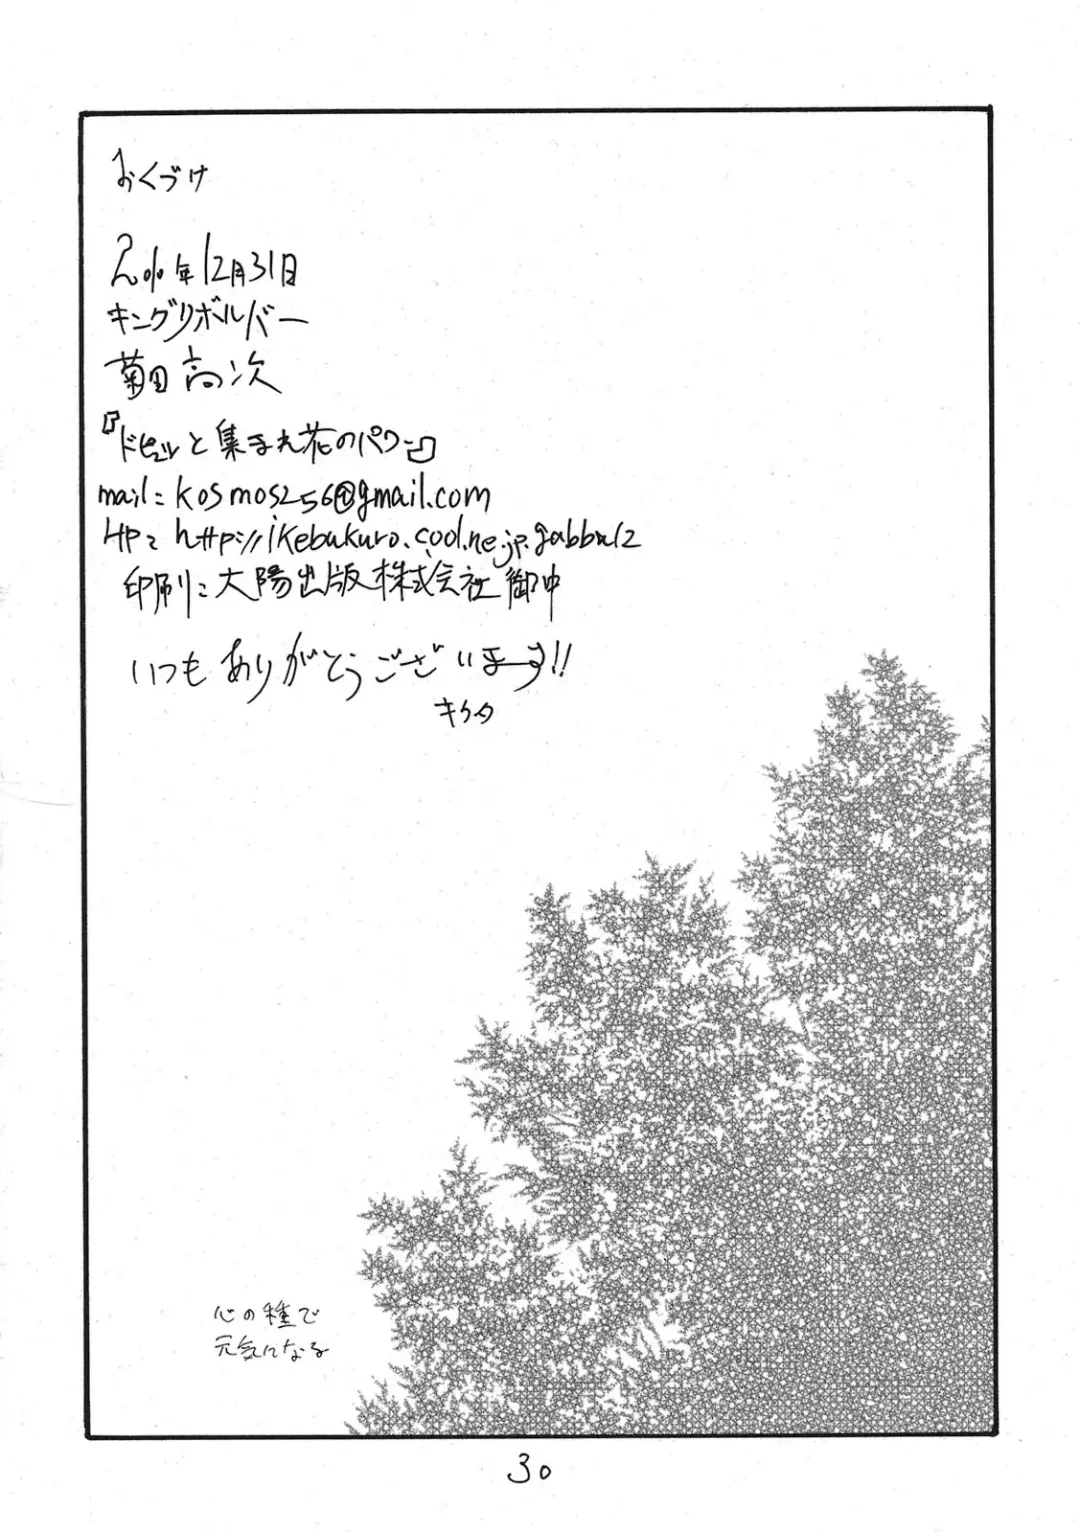 おくづけ
2010年12月31日
キングリボルバー
菊田高次
『ドピュッと集まれ花のパワー』
mail: kosmos256@gmail.com
HP: http://ikebukuro.cool.ne.jp.gabbn12
印刷: 大陽出版株式会社御中
いつもありがとうございまーす!!
キクタ
心の種で
元気になる
30